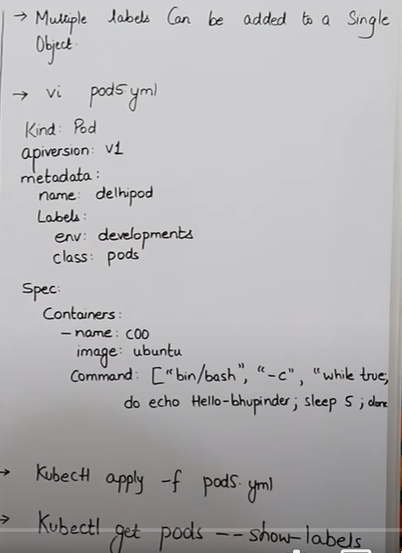 → Multiple labels Can be added to a Single
Object.
→ vi pod5 yml
Kind: Pod
apiversion: v1
metadata:
name: delhipod
Labels:
env: developments
class: pods
Spec:
Containers:
- name: C00
image: ubuntu
Command: ["bin/bash", "-c", "while true;
do echo Hello-bhupinder; sleep 5; done
→ Kubectl apply -f pod5.yml
→ Kubectl get pods --show-labels